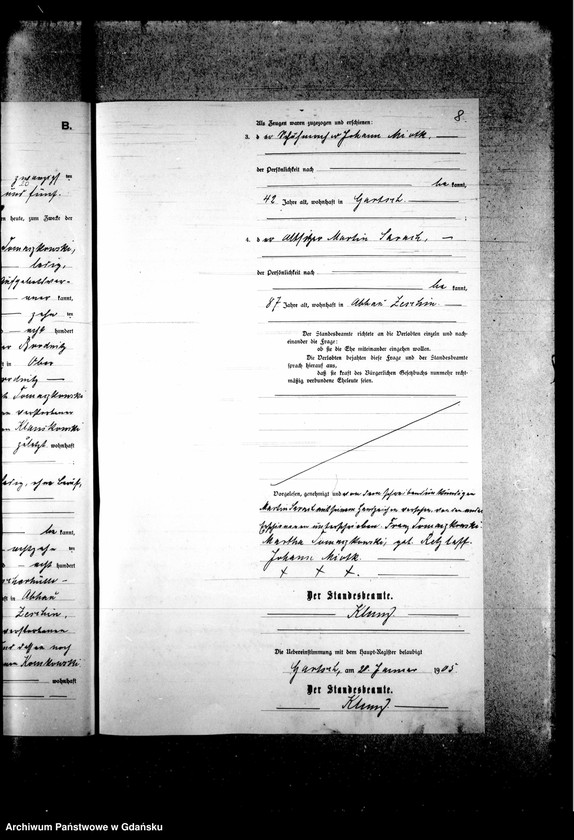 B.
zwanzigsten
und fünf.
en heute, zum Zwecke der
Tomaszkowski,
ledig,
Aufgebotsver-
kannt,
zehn ten
acht hundert
Brodnitz
st in Ober
Brodnitz
Tomaszkowski
verstorbenen
zuletzt wohnhaft
ledig, ohne Beruf,
be kannt,
ten
acht hundert
st in Abbau
Zeschin,
verstorbenen
und dessen noch
wohnhaft
8
Als Zeugen waren zugezogen und erschienen:
3. d er Schuhmacher Johann Miotk,
der Persönlichkeit nach
be kannt,
42 Jahre alt, wohnhaft in Gartsch.
4. d er Altsitzer Martin Sarach,
der Persönlichkeit nach
be kannt,
87 Jahre alt, wohnhaft in Abbau Zeschin.
Der Standesbeamte richtete an die Verlobten einzeln und nach-
einander die Frage:
ob sie die Ehe miteinander eingehen wollen.
Die Verlobten bejahten diese Frage und der Standesbeamte
sprach hierauf aus,
daß sie kraft des Bürgerlichen Gesetzbuchs nunmehr recht-
mäßig verbundene Eheleute seien.
Vorgelesen, genehmigt und von dem schreibensunkundigen
Martin Sarach mit seinem Handzeichen versehen, von den anderen
Erschienenen unterschrieben. Franz Tomaszkowski.
Martha Tomaszkowski, geb. Retzlaff.
Johann Miotk.
+ + +.
Der Standesbeamte.
Die Uebereinstimmung mit dem Haupt-Register beglaubigt
Gartsch, am 20. Januar 1905
Der Standesbeamte.
Archiwum Państwowe w Gdańsku